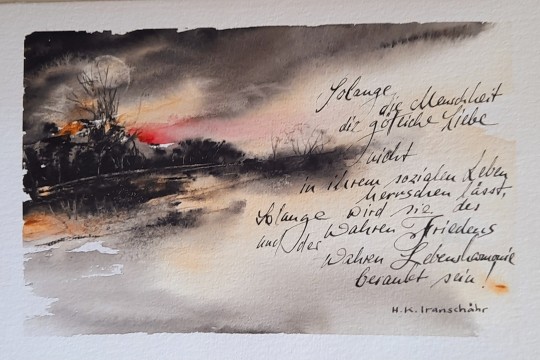 Solange
die Menschheit
die götliche Liebe
nicht
in ihrem sozialen Leben
herrschen lässt
Solange wird sie des
Wahren Friedens
und der
Wahren Lebensharmonie
beraubt sein!
H.K. Iranschähr